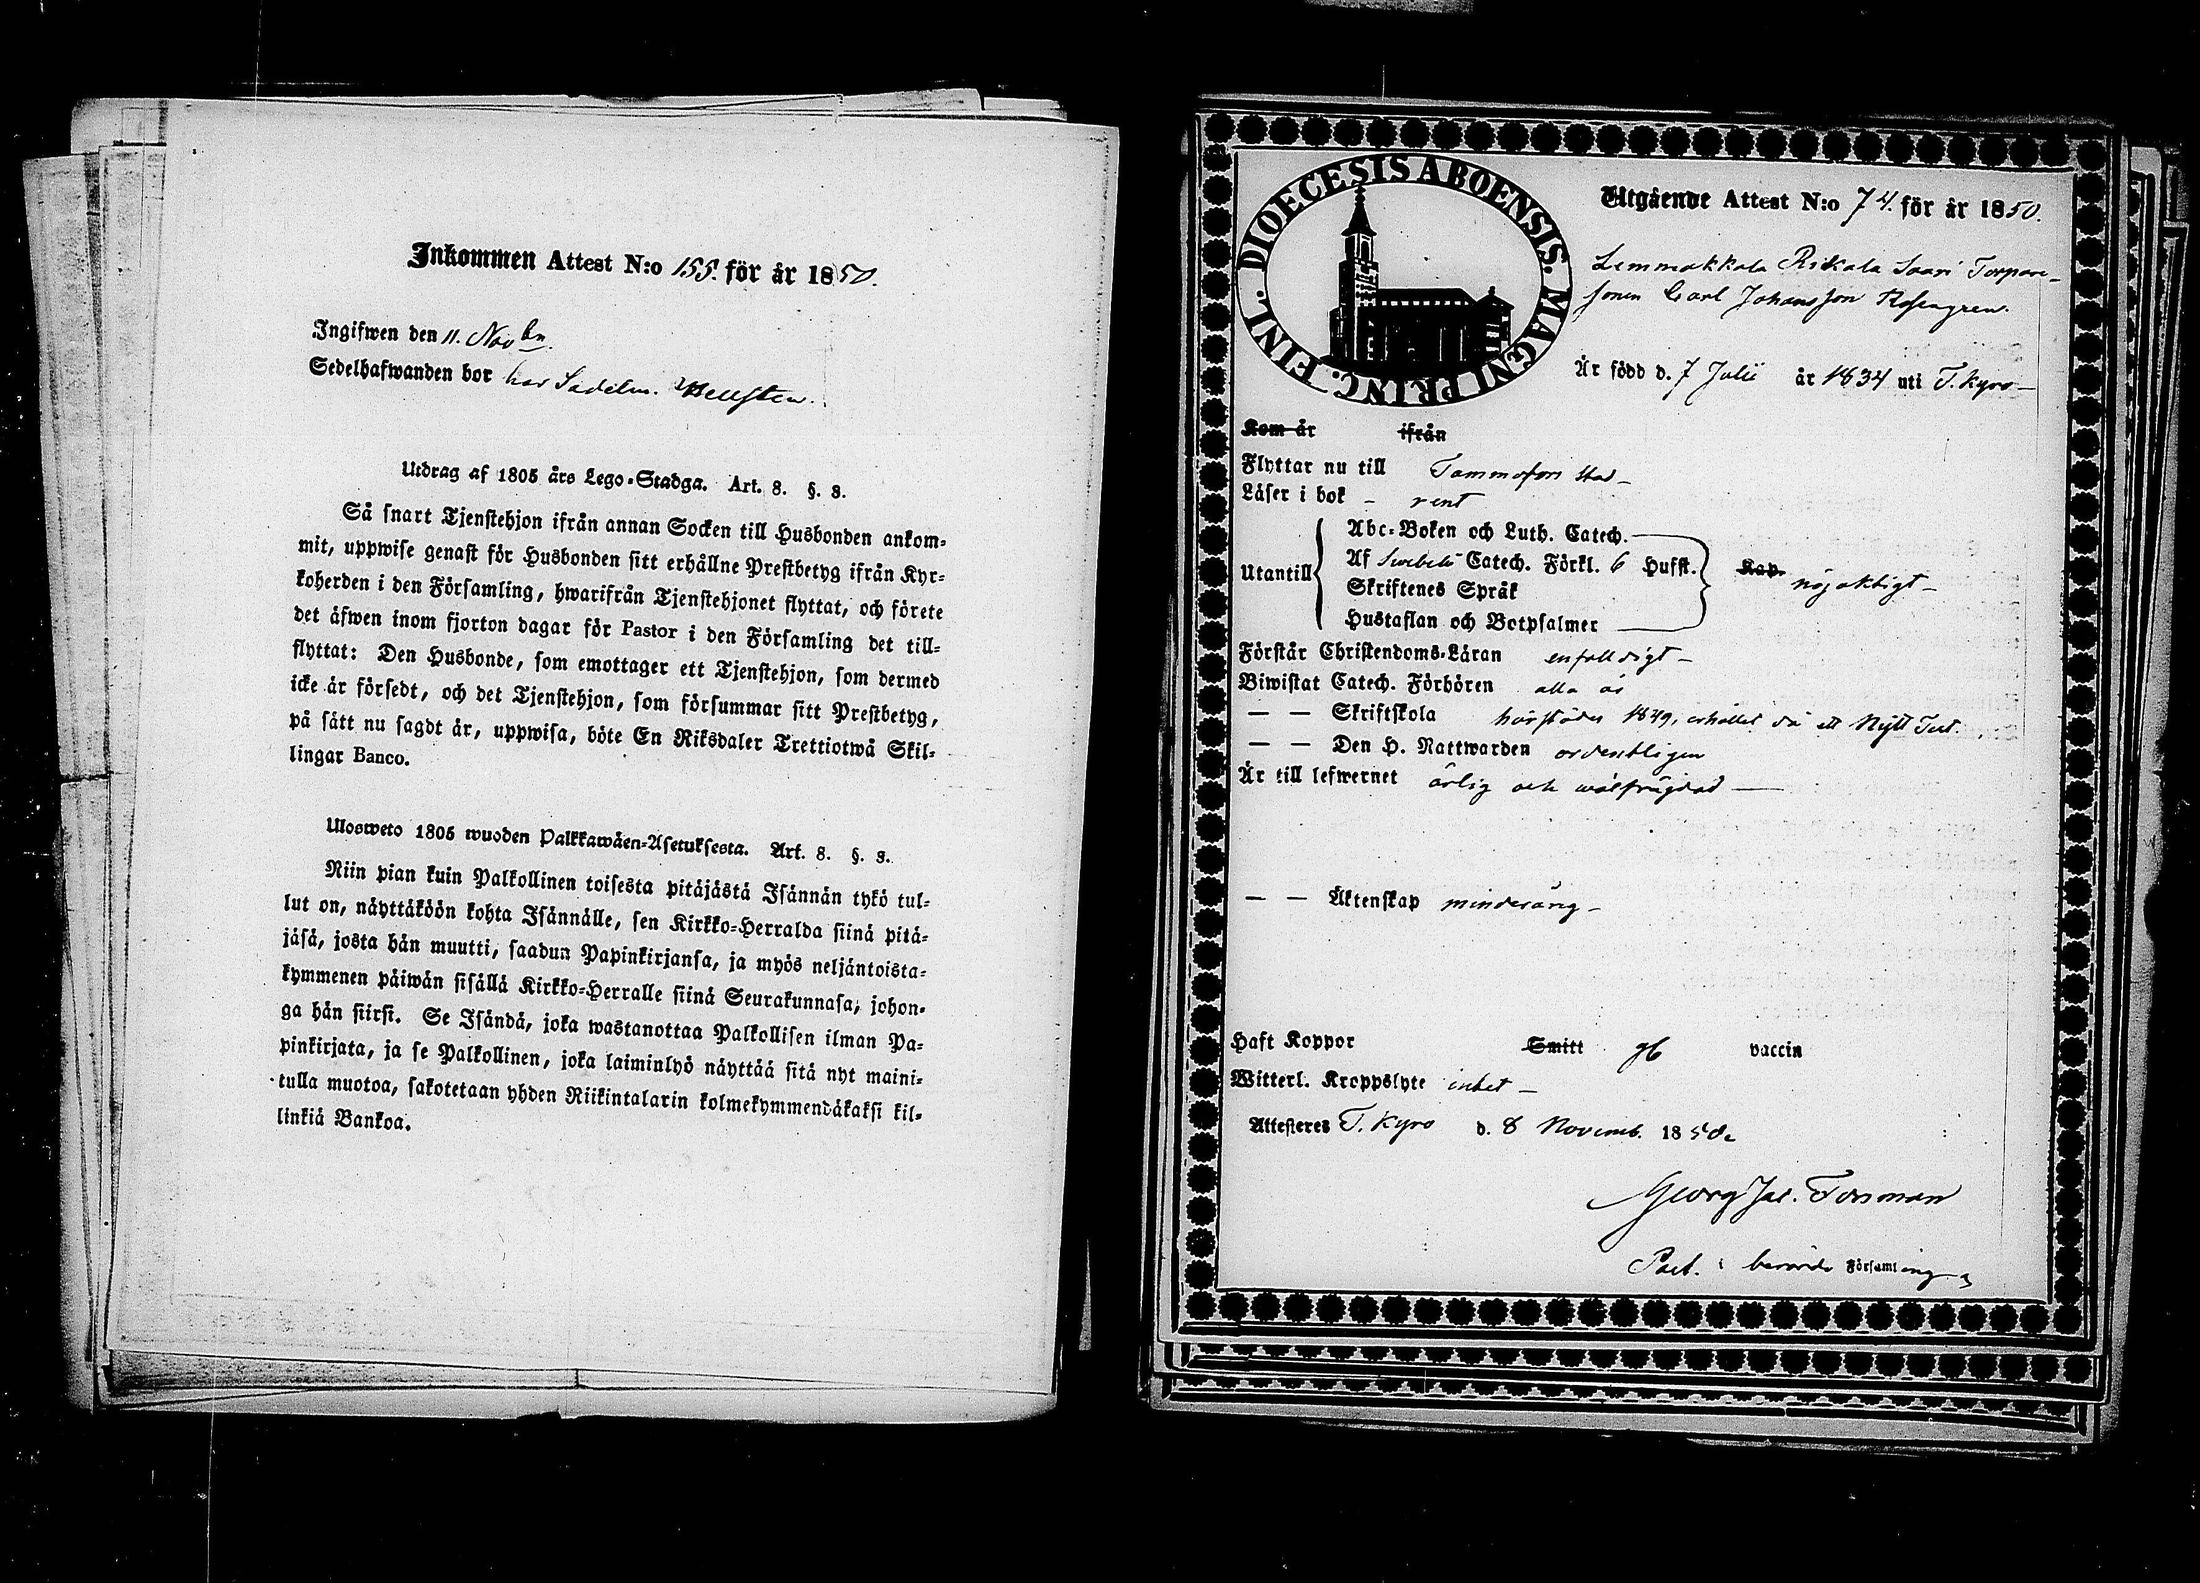 Inkommen Attest N:o 155. för år 1850.
Ingifwen den 11. Novbr
Sedelhafwanden bor hos Sadelm. Wellsten.
Utdrag af 1805 års Lego-Stadga. Art. 8. §. 3.
Så snart Tjenstehjon ifrån annan Socken till Husbonden ankom-
mit, uppwise genast för Husbonden sitt erhållne Prestbetyg ifrån Kyr-
koherden i den Församling, hwarifrån Tjenstehjonet flyttat, och förete
det äfwen inom fjorton dagar för Pastor i den Församling det till-
flyttat: Den Husbonde, som emottager ett Tjenstehjon, som dermed
icke är försedt, och det Tjenstehjon, som försummar sitt Prestbetyg,
på sätt nu sagdt är, uppwisa, böte En Riksdaler Trettiotwå Skil-
lingar Banco.
Ulosweto 1805 wuoden Palkkawäen-Asetuksesta. Art. 8. §. 3.
Niin pian kuin Palkollinen toisesta pitäjästä Isännän tykö tul-
lut on, näyttäköön kohta Isännälle, sen Kirkko-Herralda siinä pitä-
jäsä, josta hän muutti, saadun Papinkirjansa, ja myös neljäntoista-
kymmenen päiwän sisällä Kirkko-Herralle siinä Seurakunnasa, johon-
ga hän siirsi. Se Isändä, joka wastanottaa Palkollisen ilman Pa-
pinkirjata, ja se Palkollinen, joka laiminlyö näyttää sitä nyt maini-
tulla muotoa, sakotetaan yhden Riikintalarin kolmekymmendäkaksi kil-
linkiä Bankoa.
DIOECESIS ABOENSIS. MAGNI PRINC. FINL.
Utgående Attest N:o 74. för år 1850.
Lemmakkala Rikala Saari Torpare-
sonen Carl Johansson Rosengren.
Är född d. 7 Julii år 1834 uti T. Kyro
Kom år ifrån
Flyttar nu till Tammefors Stad
Läser i bok rent
Utantill
Abc-Boken och Luth. Catech.
Af Swebelii Catech. Förkl. 6 Hufst. Kap. nöjaktigt
Skriftenes Språk
Hustaflan och Botpsalmer
Förstår Christendoms-Läran enfaldigt
Biwistat Catech. Förhören alla år
— — Skriftskola härstädes 1849, erhållet då ett Nytt Test.
— — Den H. Nattwarden ordentligen
Är till lefwernet ärlig och wälfrägdad
— — Äktenskap minderårig
Haft Koppor Smitt gb vaccin
Witterl. Kroppslyte intet
Attesteres T. Kyro d. 8 Novemb. 1850.
Georg Jac. Forsman
Past. i berörde Församling